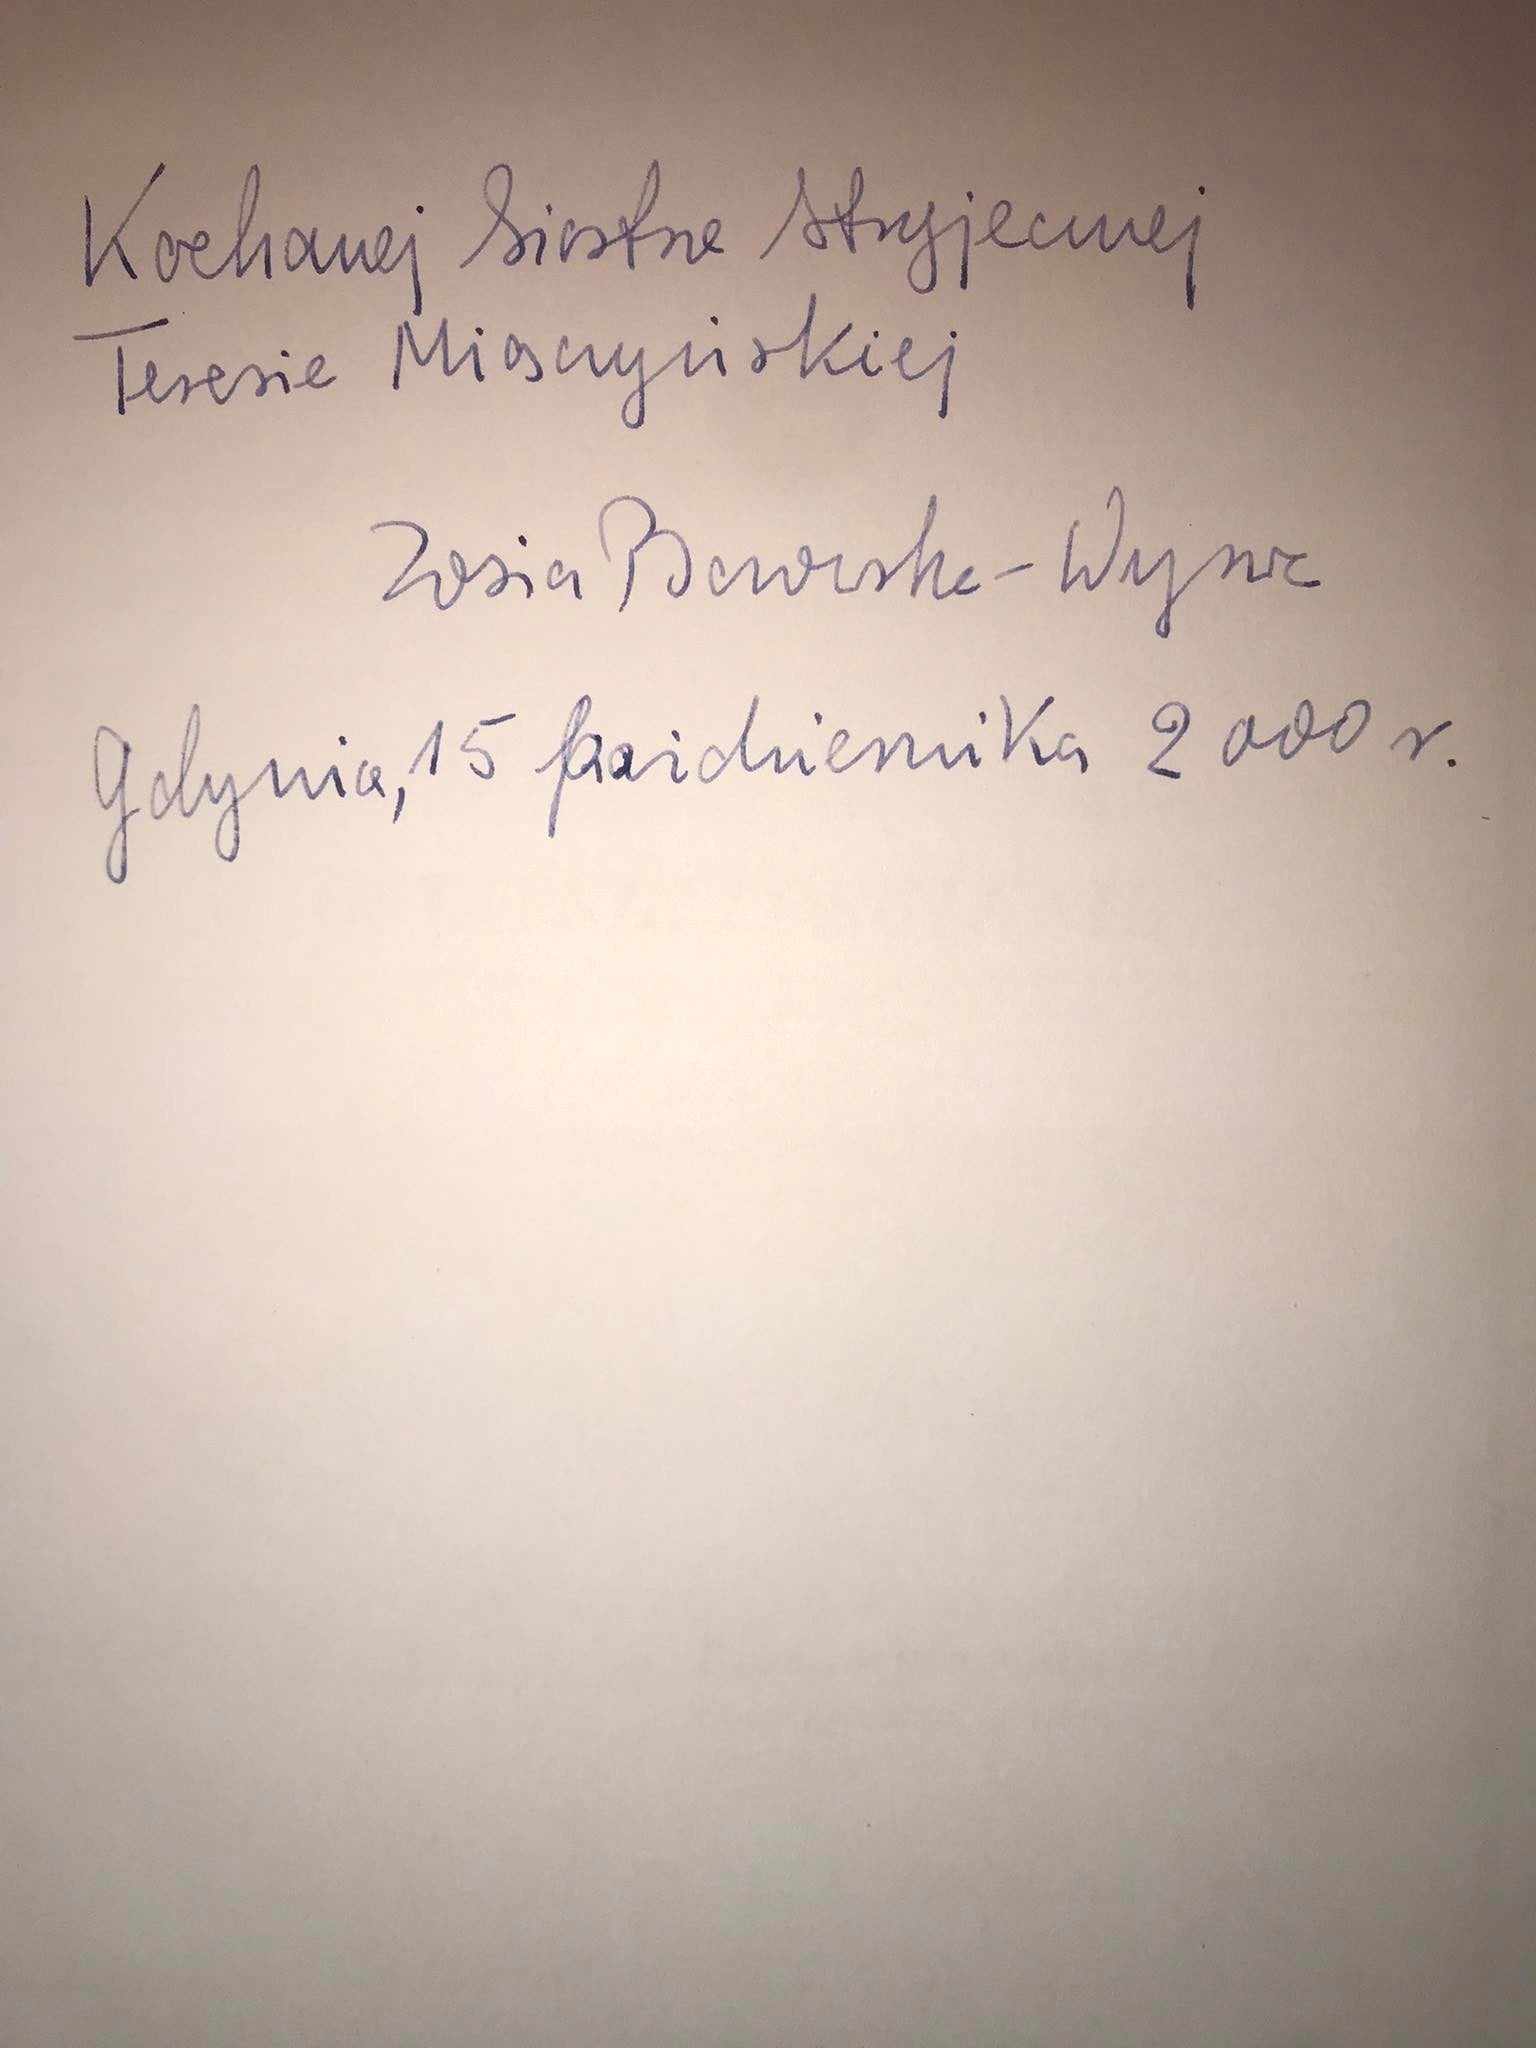 Kochanej Siostrze Stryjecznej
Teresie Miączyńskiej
Zosia
Gdynia, 15 października 2000 r.